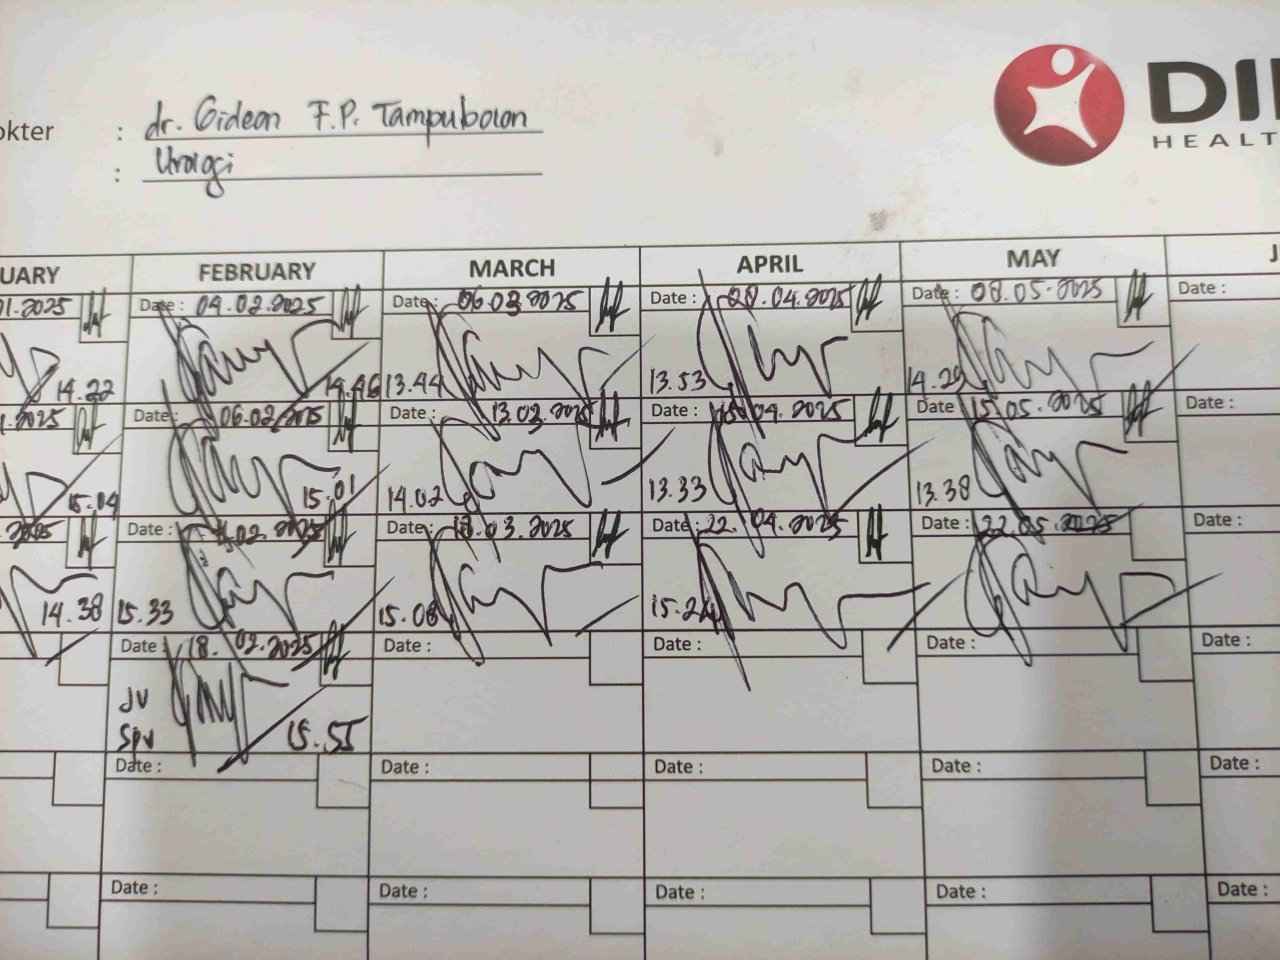 okter : dr. Gideon F.P. Tampubolon
: Urologi
DI
HEALT
UARY FEBRUARY MARCH APRIL MAY J
.2025 Date : 04.02.2025 Date : 06.03.2025 Date : .04.2025 Date : 08.05.2025 Date :
14.22 14.46 13.44 13.53 14.29
.2025 Date : 06.02.2025 Date : 13.03.2025 Date : .04.2025 Date : 15.05.2025 Date :
15.04 15.01 14.02 13.33 13.38
2025 Date : .02.2025 Date : 18.03.2025 Date : 22.04.2025 Date : 22.05.2025 Date :
14.38 15.33 15.08 15.24
Date : 18.02.2025 Date : Date : Date : Date :
JV
Spv 15.55
Date : Date : Date : Date : Date :
Date : Date : Date : Date : Date :